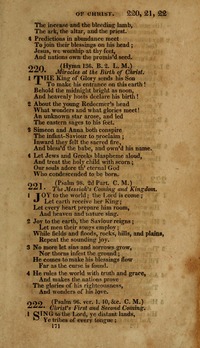 OF CHRIST. 220, 21, 22
The incense and the bleeding lamb,
The ark, the altar, and the priest.
4 Predictions in abundance meet
To join their blessings on his head;
Jesus, we worship at thy feet,
And nations own the promis'd seed.
220. (Hymn 136. B. 2. L. M.)
Miracles at the Birth of Christ.
1 THE King of Glory sends his Son
To make his entrance on this earth!
Behold the midnight bright as noon,
And heavenly hosts declare his birth!
2 About the young Redeemer's head
What wonders and what glories meet!
An unknown star arose, and led
The eastern sages to his feet.
3 Simeon and Anna both conspire
The infant-Saviour to proclaim;
Inward they felt the sacred fire,
And bless'd the babe, and own'd his name.
4 Let Jews and Greeks blaspheme aloud,
And treat the holy child with scorn;
Our souls adore th' eternal God
Who condescended to be born.
221. (Psalm 98. 2d Part. C. M.)
The Messiah's Coming and Kingdom.
1 JOY to the world; the Lord is come;
Let earth receive her King;
Let every heart prepare him room,
And heaven and nature sing.
2 Joy to the earth, the Saviour reigns;
Let men their songs employ;
While fields and floods, rocks, hills, and plains,
Repeat the sounding joy.
3 No more let sins and sorrows grow,
Nor thorns infest the ground;
He comes to make his blessings flow
Far as the curse is found.
4 He rules the world with truth and grace,
And makes the nations prove
The glories of his righteousness,
And wonders of his love.
222. (Psalm 96. ver. 1, 10, &c. C. M.)
Christ's First and Second Coming.
1 SING to the Lord, ye distant lands,
Ye tribes of every tongue;
171